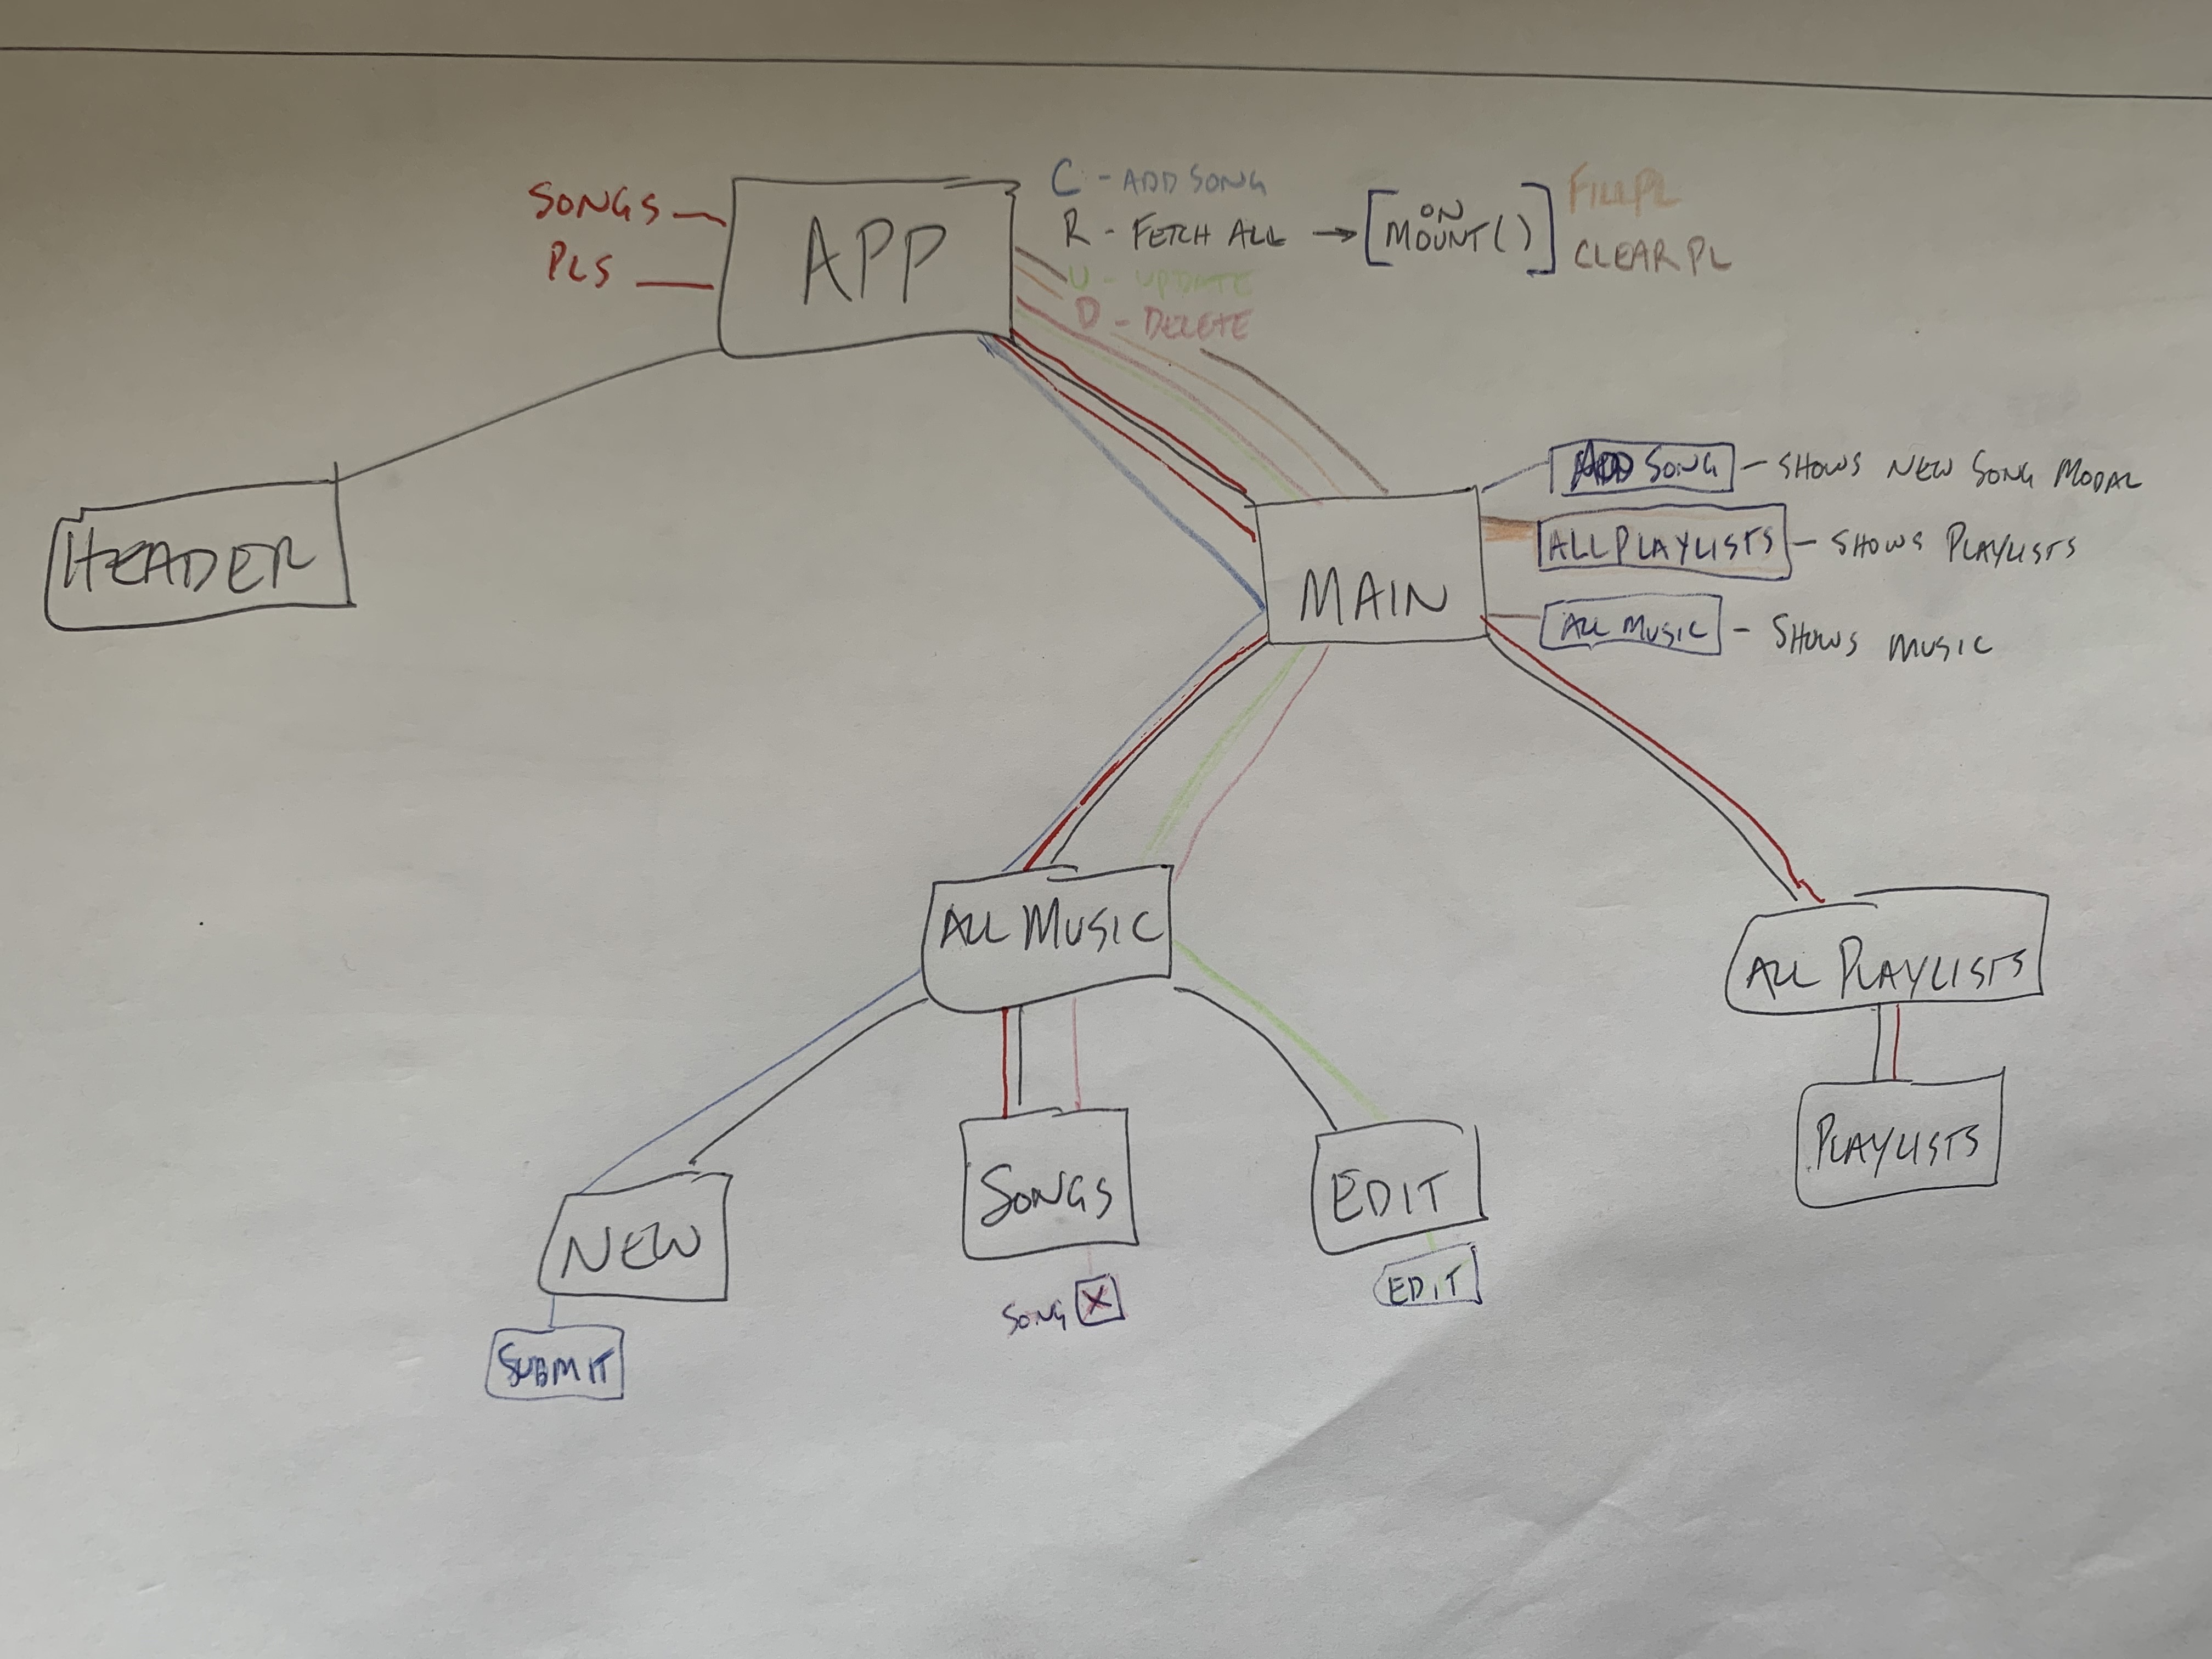 SONGS
PLS
APP
C - ADD SONG
R - FETCH ALL → [ON MOUNT()]
U - UPDATE
D - DELETE
FILLPL
CLEARPL
HEADER
MAIN
ADD SONG - SHOWS NEW SONG MODAL
ALL PLAYLISTS - SHOWS PLAYLISTS
ALL MUSIC - SHOWS MUSIC
ALL MUSIC
ALL PLAYLISTS
NEW
SONGS
EDIT
PLAYLISTS
SUBMIT
SONG X
EDIT